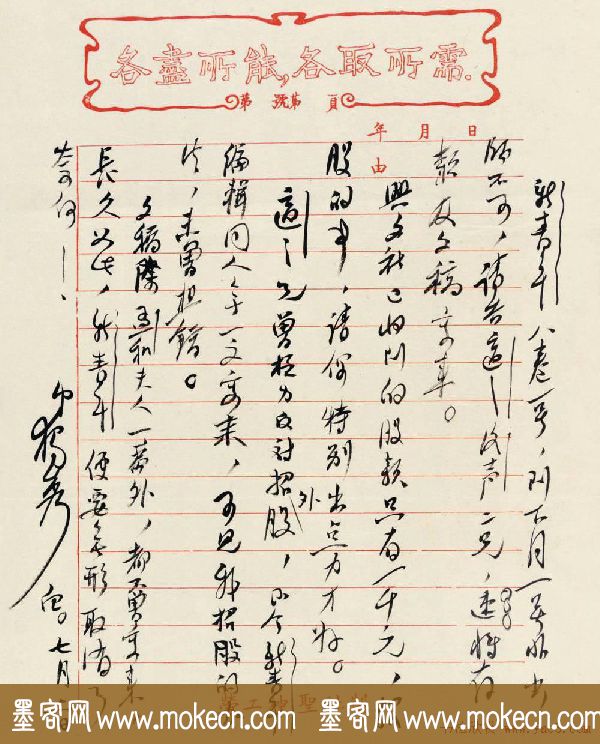 各盡所能,各取所需.
第 號第 頁
年 月 日
由
新青年八卷一号,到下月一号非出
版不可,請告適之、洛声二兄,速將存
款及文稿寄来。
興文社已收到的股款只有一千元,
股的事,請你特別出点力才好。
適之兄曾極力反対招外股,
編輯同人一文寄来,可見我招股的
法,未曾想錯。
文稿除孟和夫人一篇外,都不曾寄来
長久如此,新青年便要無形取消了
奈何!
弟獨秀 白。七月
墨客网 www.mokecn.com 墨客网 www.mokecn.com